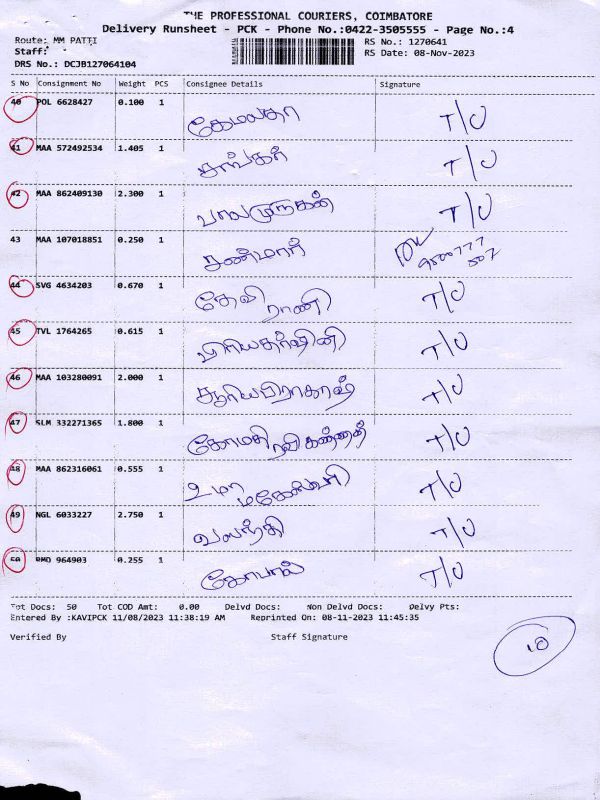 THE PROFESSIONAL COURIERS, COIMBATORE
Delivery Runsheet - PCK - Phone No.:0422-3505555 - Page No.:4
Route: MM PATTI
RS No.: 1270641
Staff:
RS Date: 08-Nov-2023
DRS No.: DCJB127064104
S No Consignment No Weight PCS Consignee Details Signature
40 POL 6628427 0.100 1 ஹேமலதா T/O
41 MAA 572492534 1.405 1 சங்கர் T/O
42 MAA 862409130 2.300 1 பாலமுருகன் T/O
43 MAA 107018851 0.250 1
44 SVG 4634203 0.670 1 தேவி ராணி T/O
45 TVL 1764265 0.615 1 பிரியதர்ஷினி T/O
46 MAA 103280091 2.000 1 சூரியபிரகாஷ் T/O
47 SLM 332271365 1.800 1 கோமதி T/O
48 MAA 862316061 0.555 1 உமா மகேஸ்வரி T/O
49 NGL 6033227 2.750 1 T/O
50 964903 0.255 1 கோபால் T/O
Tot Docs: 50 Tot COD Amt: 0.00 Delvd Docs: Non Delvd Docs: Delvy Pts:
Entered By :KAVIPCK 11/08/2023 11:38:19 AM Reprinted On: 08-11-2023 11:45:35
Verified By Staff Signature
10